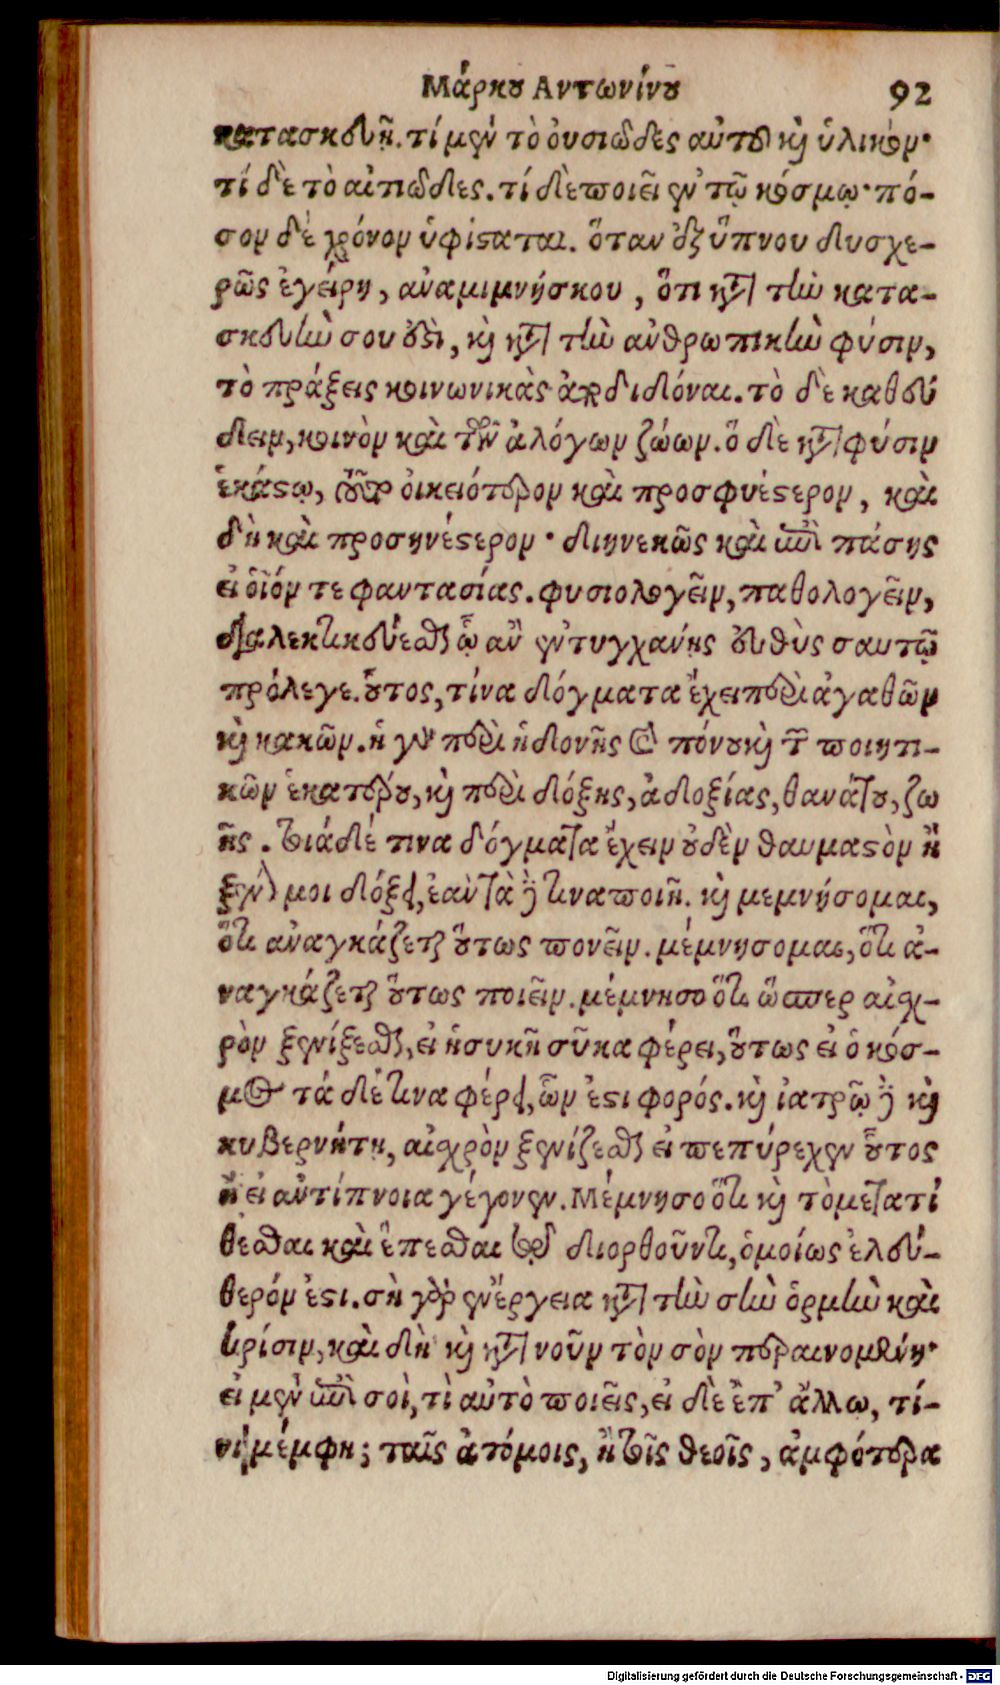 Μάρκου Αντωνίνου 92
κατασκευῇ. τί μὲν τὸ οὐσιῶδες αὐτοῦ καὶ ὑλικόν·
τί δὲ τὸ αἰτιῶδες. τί δὲ ποιεῖ ἐν τῷ κόσμῳ· πό-
σον δὲ χρόνον ὑφίσταται. ὅταν ἐξ ὕπνου δυσχε-
ρῶς ἐγείρῃ, ἀναμιμνήσκου, ὅτι κατὰ τὴν κατα-
σκευὴν σου ἐστὶ, καὶ κατὰ τὴν ἀνθρωπικὴν φύσιν,
τὸ πράξεις κοινωνικὰς ἀποδιδόναι. τὸ δὲ καθεύ
δειν, κοινὸν καὶ τῶν ἀλόγων ζώων. ὅ δὲ κατὰ φύσιν
ἑκάστῳ, τοῦτο οἰκειότερον καὶ προσφυέστερον, καὶ
δὴ καὶ προσηνέστερον· διηνεκῶς καὶ ἐπὶ πάσης
εἰ οἷόν τε φαντασίας. φυσιολογεῖν, παθολογεῖν,
διαλεκτικεύεσθαι ᾧ ἂν ἐντυγχάνῃς εὐθὺς σαυτῷ
πρόλεγε. οὗτος, τίνα δόγματα ἔχει περὶ ἀγαθῶν
καὶ κακῶν. ἠ γὰρ περὶ ἡδονῆς καὶ πόνου καὶ τῶν ποιητι-
κῶν ἑκατέρου, καὶ περὶ δόξης, ἀδοξίας, θανάτου, ζω
ῆς. τοιάδέ τινα δόγματα ἔχειν οὐδὲν θαυμαστὸν ἢ
ξένον μοι δόξει, ἐὰν τὰ δέ τινα ποιῇ. καὶ μεμνήσομαι,
ὅτι ἀναγκάζεται οὕτως πονεῖν. μέμνησομαι, ὅτι ἀ-
ναγκάζεται οὕτως ποιεῖν. μέμνησο ὅτι ὥσπερ αἰσχ-
ρὸν ξενίξεσθαι, εἰ ἡ συκῆ σῦκα φέρει, οὕτως εἰ ὁ κόσ-
μος τά δέ τινα φέρει, ὧν ἐστι φορός. καὶ ἰατρῷ δὲ καὶ
κυβερνήτῃ, αἰσχρὸν ξενίζεσθαι εἰ πεπύρεχεν οὗτος
ἢ εἰ αὐτίπνοια γέγονεν. Μέμνησο ὅτι καὶ τὸ μετατί
θεσθαι καὶ ἕπεσθαι τῷ διορθοῦντι, ὁμοίως ἐλεύ-
θερόν ἐστι. σὴ γὰρ ἐνέργεια κατὰ τὴν σὴν ὁρμὴν καὶ
κρίσιν, καὶ δὴ καὶ κατὰ νοῦν τὸν σὸν περαινομένη·
εἰ μὲν ἐπὶ σοὶ, τὶ αὐτὸ ποιεῖς, εἰ δὲ ἐπ' ἄλλῳ, τί-
νι μέμφη; ταῖς ἀτόμοις, ἢ τοῖς θεοῖς, ἀμφότερα
Digitalisierung gefördert durch die Deutsche Forschungsgemeinschaft - DFG